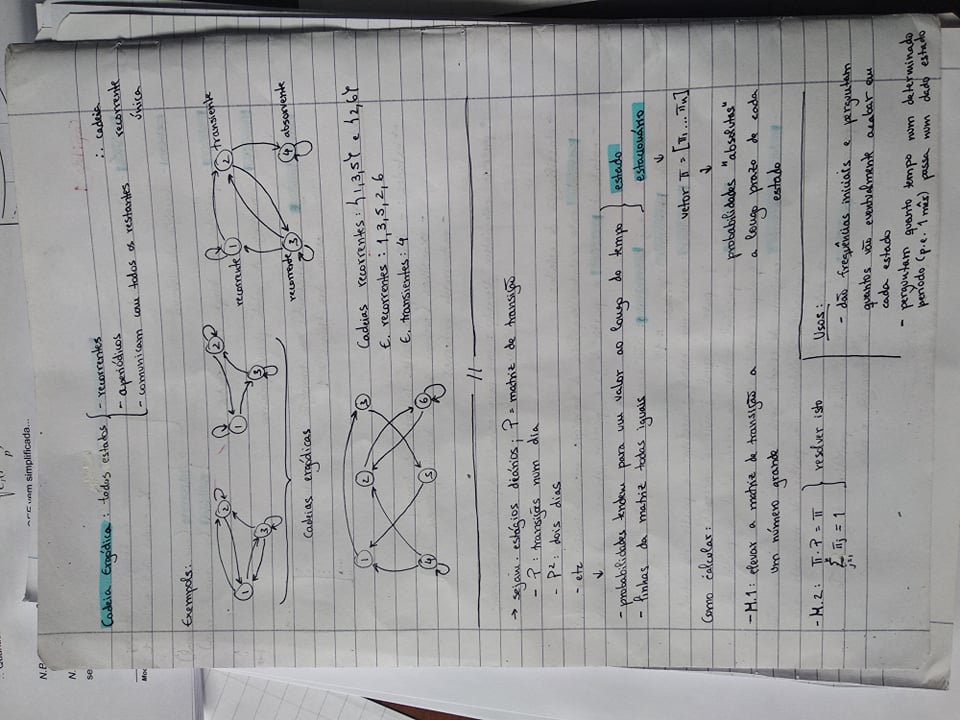 simplificada...
N.B
N.
se
Cadeia Ergódica: todos estados { - recorrentes
- aperiódicos
- comunicam com todos os restantes
∴ cadeia
recorrente
única
Exempols:
1 2 3
1 2 3
recorrente 1
2 transiente
recorrente 3
4 absorvente
Cadeias ergódicas
1 2 3
4 5 6
Cadeias recorrentes: {1,3,5} e {2,6}
E. recorrentes: 1,3,5,2,6
E. transientes: 4
//
→ sejam estágios diários; P = matriz de transição
- P: transições num dia
- P²: dois dias
- etc
↓
- probabilidades tendem para um valor ao longo do tempo
- linhas da matriz todas iguais
} estado
estacionário
↓
vetor π = [π₁ ... πₙ]
↓
probabilidades "absolutas"
a longo prazo de cada
estado
Como calcular:
- M.1: elevar a matriz de transição a
um número grande
- M.2: π · P = π
Σ πj = 1
} resolver isto
Usos:
- dão frequências iniciais e perguntam
quantos vão eventualmente acabar em
cada estado
- perguntam quanto tempo num determinado
período (p.e. 1 mês) passa num dado estado